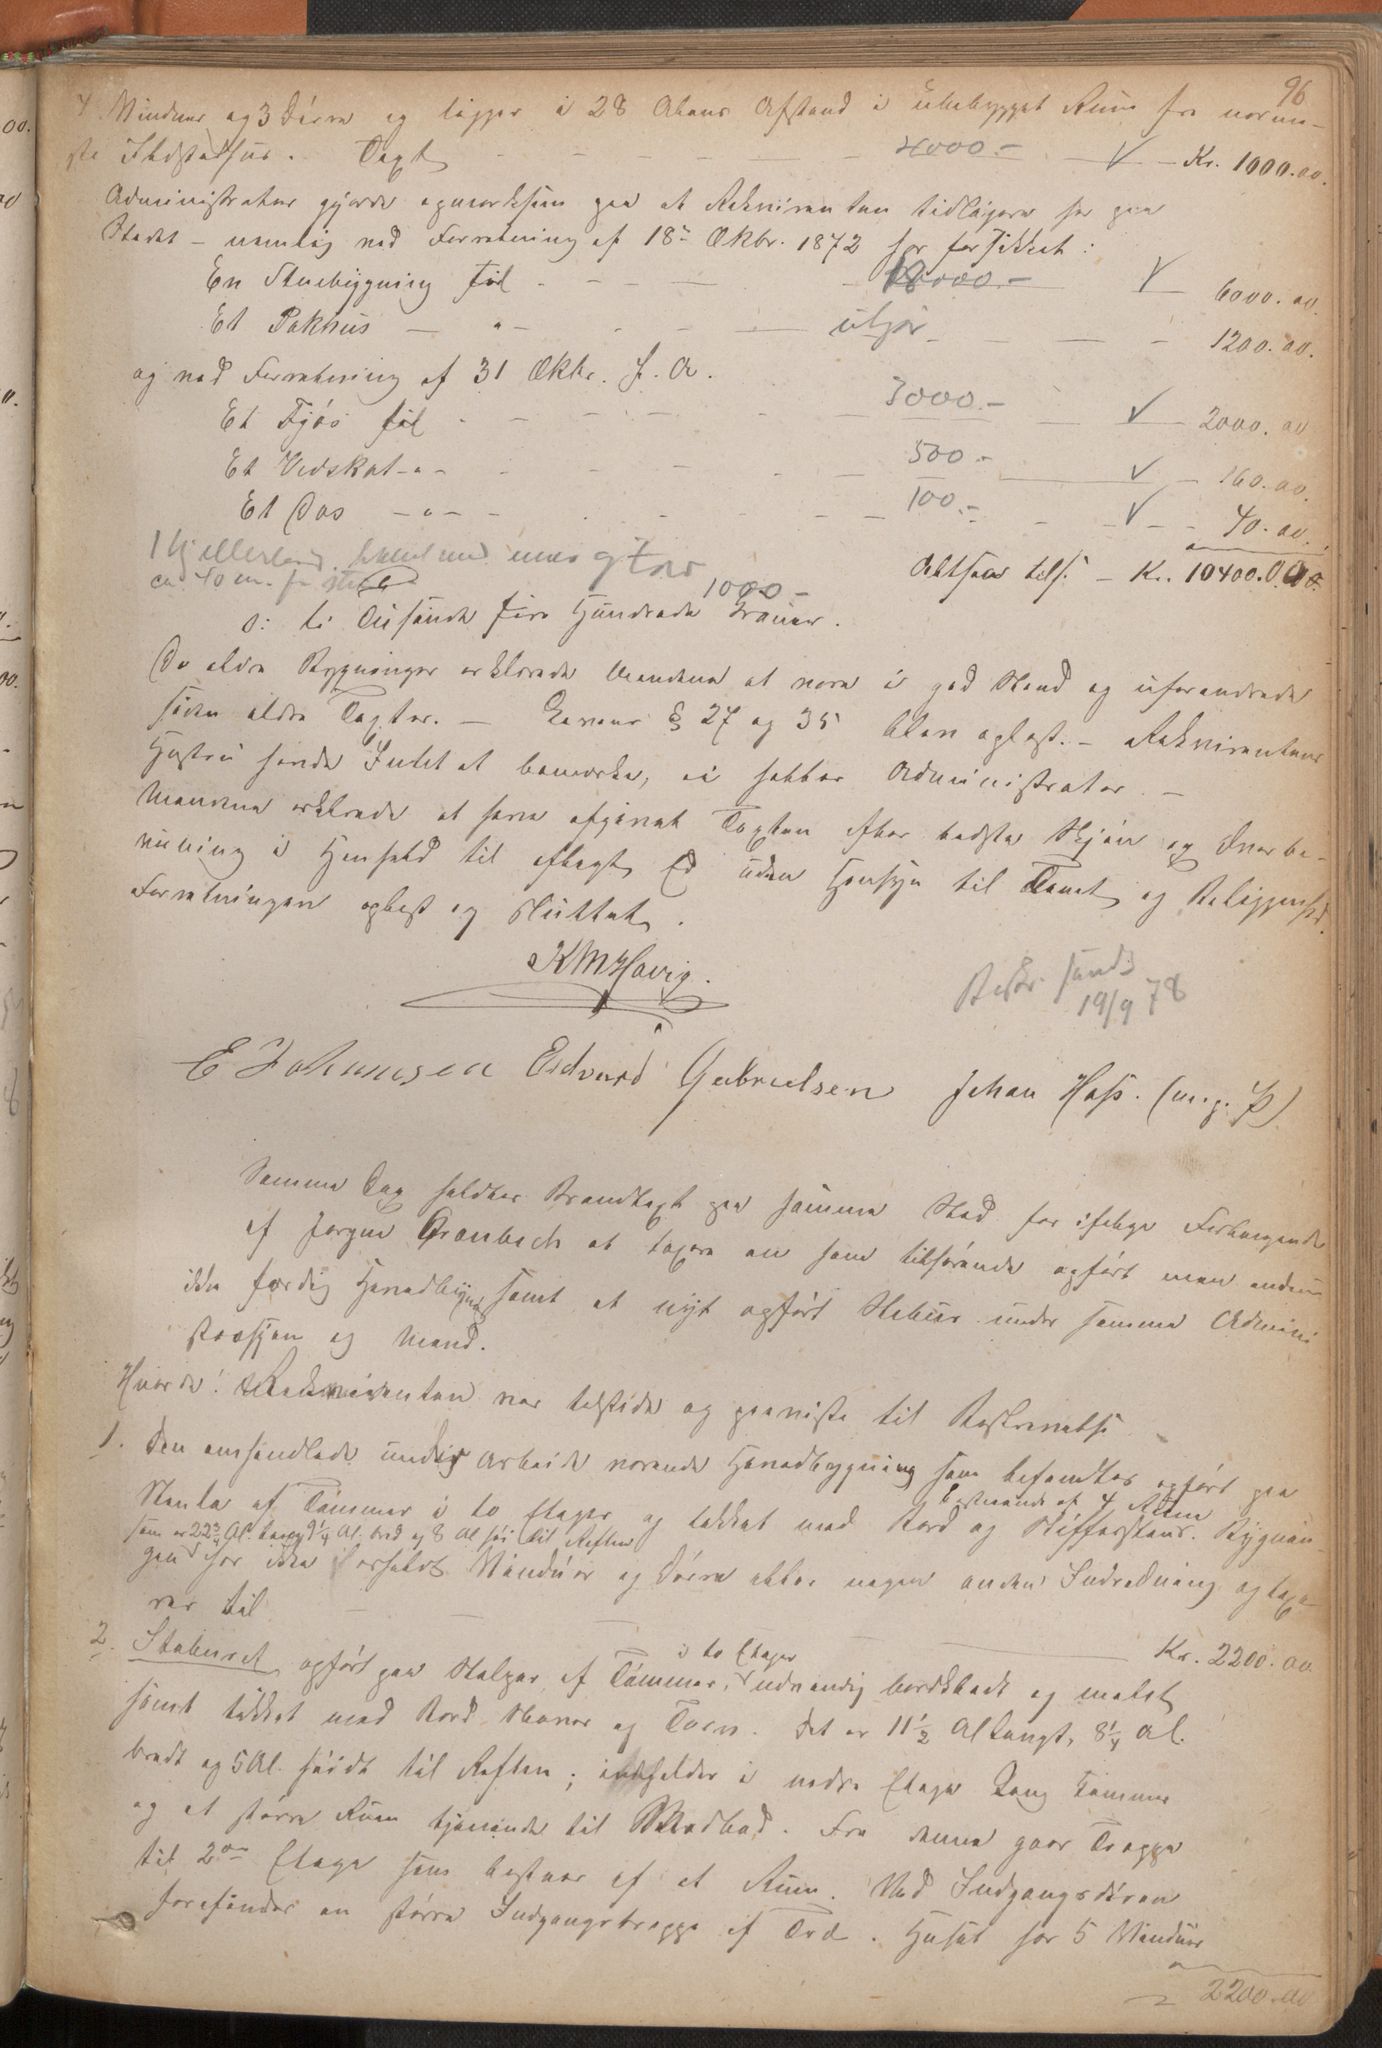 96
4 Vinduer og 3 Dörre og ligger i 28 Alens Afstand i ubebygget Rum fra nærme-
ste Ildstedhus. Taxt 4000.- Kr. 1000.00.
Administrator gjorde opmærksom paa at Rekvirenten tidligere har paa
Stedet – nemlig ved Forretning af 18de Oktbr. 1872 har forsikket:
En Stuebygning til 18000.- 6000.00.
Et Pakhus — " — utgår 1200.00.
og ved Forretning af 31 Oktbr. s. A.
Et Fjös til 3000.- 2000.00
Et Vedskot - " - 500.- 160.00.
Et Das — " — 100.- 40.00.
1 kjellerland med
ca. 40 m. fra 1000 -
Altsaa tils. – Kr. 10400.00.
o: ti Tusinde fire Hundrede Kroner.
De ældre Bygninger erklærede Mændene at være i god Stand og uforandrede
siden ældre Taxter. — Lovens § 27 og 35 blev oplæst. – Rekvirentens
Hustru havde Intet at bemærke, ei heller Administrator. —
Mændene erklærede at have afgivet Taxten efter bedste Skjön og Overbe-
visning i Henhold til aflagt Ed uden Hensyn til Tomt og Beliggenhed.
Forretningen oplæst og sluttet.
K M Havig.
Beskr. sendt
19/9 78
E Johannsen Edvard Gabrielsen Johan Hass. (m.p.P)
Samme Dag holdtes Brandtaxt paa samme Sted for ifölge Forlangende
af Jörgen Cronbech at taxere en ham tilhörende opfört men endnu
ikke færdig Hovedbygn. samt et nyt opfört Stabur under samme Admini
strasjon og Mænd.
Hvorda! Rekvirenten var tilstede og paaviste til Beskrivelse
1. Den omhandlede under Arbeide værende Hovedbygning som befandtes opfört paa
bestaaende af 4 Rum
Stenla af Tömmer i to Etager og tækket med Bord og Skifferstens. Bygnin-
som er 22¾ Al. lang 9¼ Al. bred og 8 Al höi til Røften
gen har ikke isatte Vinduer og Dörre eller nogen anden Indredning og taxe-
res til Kr. 2200.00
2. Staburet opfört paa Stolper af Tömmer, i to Etager udvendig bordklædt og malet
samt tækket med Bord Næver og Torv. Det er 11½ Al langt, 8¼ Al.
bredt og 5 Al. höidt til Røften; indholder i nedre Etage Gang Kammer
og et större Rum tjenende til Madbod. Fra denne gaar Trappe
til 2den Etage som bestaar af et Rum. Ved Indgangsdören
forefindes en större Indgangstrappe af Træ. Huset har 5 Vinduer
2200.00